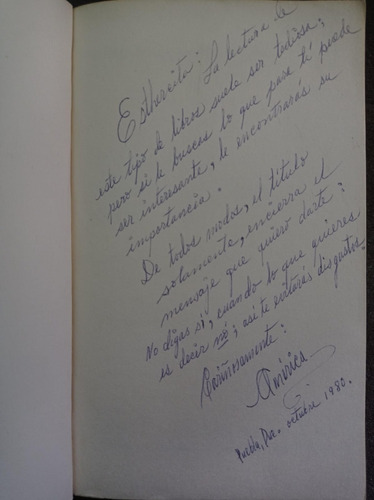 Esthercita: La lectura de
este tipo de libros suele ser tediosa;
pero si le buscas lo que para tí puede
ser interesante, le encontrarás su
importancia.
De todos modos, el título
solamente, encierra el
mensaje que quiero darte:
No digas sí, cuando lo que quieres
es decir nó; así te evitarás disgustos.
Cariñosamente:
América
Puebla, Pue. octubre 1980.